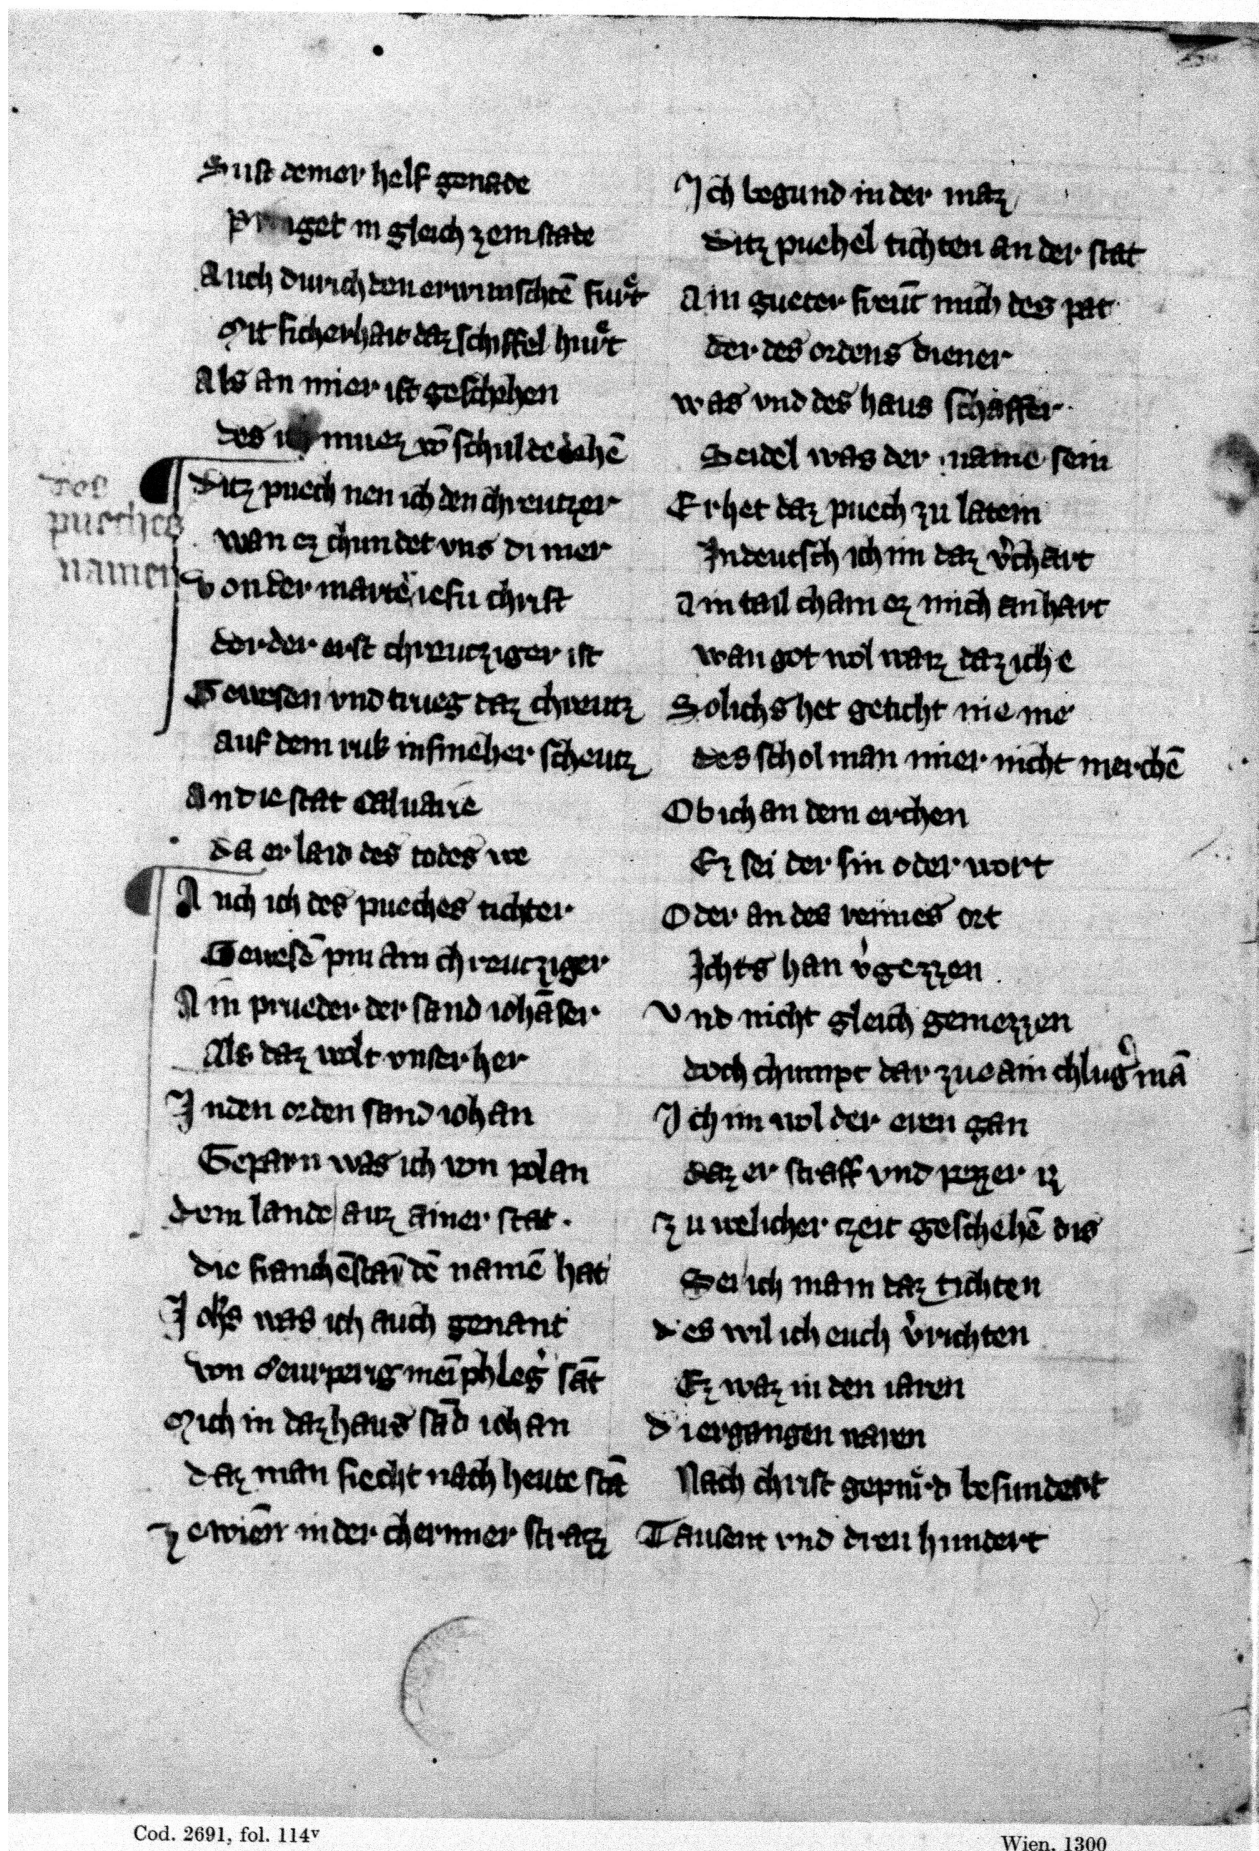 Sust demer helf genade
Pringet in gleich zem stade
Auch durich den erwunschtē fuͤrt
Mit sicherhait daz schiffel hiuͤrt
Als an mier ist geschehen
des ich muez vō schulde iehē
des
pueches
namen
Ditz puech nen ich den chreutzer
wan ez chundet uns di mer
Von der mart' iesu christ
der der erst chreutziger ist
Gewesen vnd trueg daz chreutz
auf dem ruk in smeher scheutz
An die stat Caluarie
da er laid des todes we
Auch ich des pueches tichter
Gewesē pin ain chreutziger
Ain prueder der sand iohāser
Als daz wolt vnser her
In den orden sand iohan
Geparn was ich von polan
dem lande auz ainer stat.
die franchēstaī dē namē hat
Iohs was ich auch genant
von Meurperig meī phleg' sāt
Mich in daz haus sād iohan
daz man siecht nach heute stā
ze wienn in der cherrner strazz
Ich begund in der maz
ditz puehel tichten an der stat
Ain gueter freūt mich des pat
der des ordens diener
was vnd des haus schaffer.
Seidel was der name sein
Er het daz puech zu latein
In deutsch ich im daz v'chart
Ain tail cham ez mich an hart
wan got wol waiz daz ich e
Solichs het geticht nie me
des schol man mier nicht merchē
Ob ich an dem erchen
Ez sei der sin oder wort
Oder an des reimes ort
Ichts han v'gezzen
Vnd nicht gleich gemezzen
doch chumpt dar zue ain chlug' mā
Ich im wol der eren gan
daz er straff vnd pezzer iz
Zu welicher czeit geschehē dis
Sei ich main daz tichten
des wil ich euch v'richten
Ez waz in den iaren
di ergangen waren
Nach christ gepuͤrd besundert
Tausent vnd dreu hundert
Cod. 2691, fol. 114v
Wien, 1300